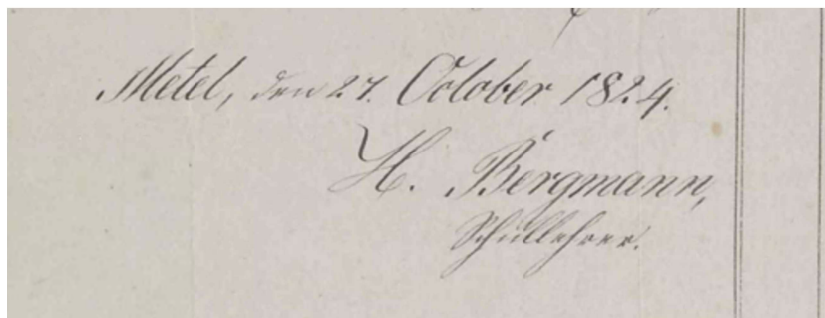 Metel, den 27. October 1824.
H. Bergmann,
Schullehrer.